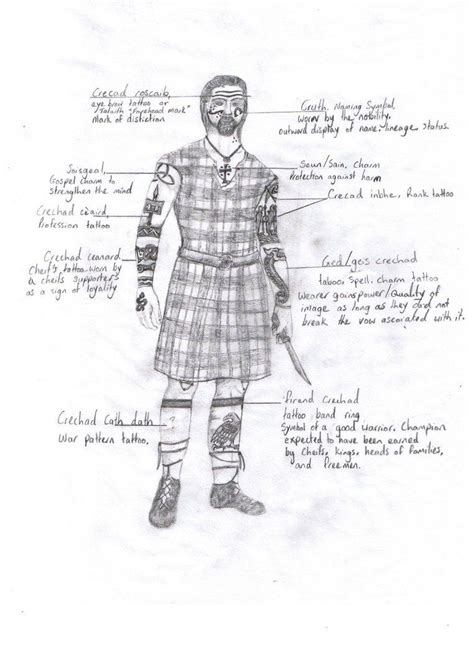 Crecad roscaib,
eye brow tattoo or
Talaith "Forehead mark"
Mark of distiction
Cruth, Naming Symbol,
worn by the nobility,
outward display of name, lineage, status.
Soisgeal,
Gospel charm to
strengthen the mind
Seun/Sain, Charm
Protection against harm
Crecad inbhe, Rank tattoo
Crechad ceaird
Profession tattoo
Crechad ceanard
Cheif's tattoo worn by
a cheifs supporters
as a sign of loyality
Ged/geis crechad
taboo, Spell, charm tattoo
Wearer gains power/Quality of
image as long as they did not
break the vow asociated with it.
firend Crechad
tattoo band ring
Symbol of a good warrior, Champion
expected to have been earned
by Cheifs, kings, heads of families,
and freemen.
Crechad Cath dath
War pattern tattoo.